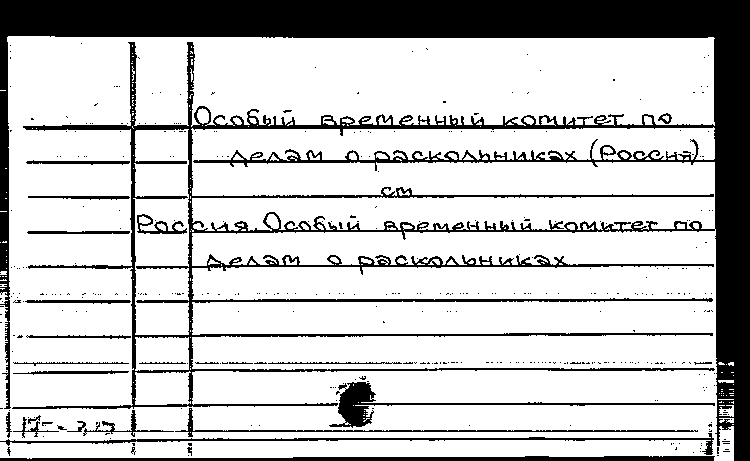 Особый временный комитет по
делам о раскольниках (Россия)
см
Россия. Особый временный комитет по
делам о раскольниках